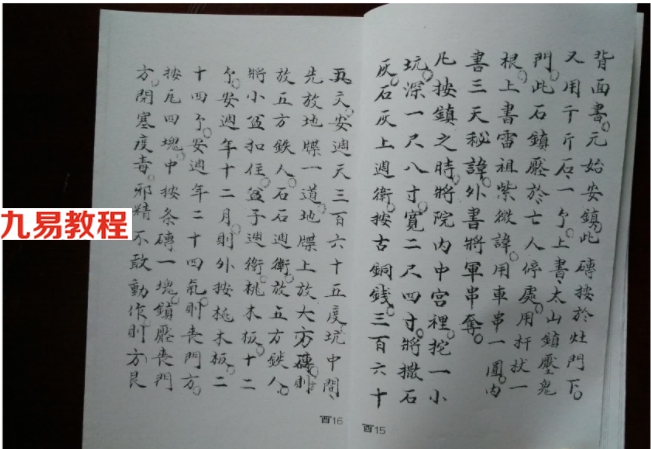 背面書。元始安鎮。此磚按於灶門下。
又用千斤石一个。上書太山鎮壓鬼
門。此石鎮壓於亡人停處。用扦狀一
根。上書雷祖紫微諱。用車串一圓。內
書三天秘諱。外書將軍串奪。
凡按鎮之時。將院內中宮裡。挖一小
坑。深一尺八寸。寬二尺四寸。將撒石
灰。石灰上週衛。按古銅錢。三百六十
五文。安週天三百六十五度。坑中間。
先放地牒一道。地牒上放大方磚。則
放五方鉄人。石石週衛。放五方鉄人。
將小盆扣住。盆子週衛。桃木板。十二
个。安週年十二月。則外按桃木板。二
十四个。安週年二十四氣。則喪門方。
按瓦四塊。中按条磚一塊。鎮壓喪門
方。閉寒度毒。邪精不敢動作。則方艮
酉16
酉15
九易教程